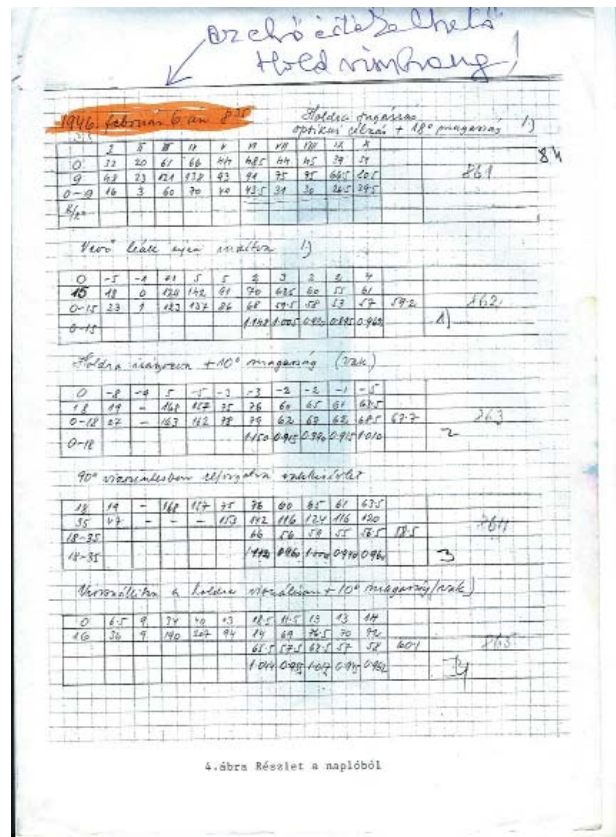 az első értékelhető
Hold visszhang!
1946. február 6-án 8 35
Holdra sugárzás
optikai célzás + 18° magasság 1)
I II III IV V VI VII VIII IX X
0 32 20 61 66 44 48.5 44 45 39 51
9 48 23 121 138 93 91 75 95
0-9 16 3 60 70 49 43.5 31 30 26.5 29.5
861
Vevő leáll újra indítva 1)
0 -5 -1 +1 5 5 2 3 2 2 4
15 18 0 124 142 91 70 62.5 60 55 61
0-15 23 1 123 137 86 68 59.5 58 53 57 59.2
862
0-15 1.148 1.005 0.895 0.962
Holdra irányozva +10° magasság (vak)
0 -8 -9 5 -5 -3 -3 -2 -2 -1 -5
18 19 - 168 157 75 76 60 65 61 63.5
0-18 27 - 163 162 78 79 62 67 62 68.5 67.7
863
0-18 1.150 0.915 0.990 0.915 1.010
2
90° vízszintesben elforgatva vakkísérlet
18 19 - 168 157 75 76 60 65 61 63.5
35 47 - - - 153 142 116 124 116 120
18-35 66 56 59 55 56.5 58.5
18-35 1.112 0.960 1.000 0.940 0.960
3
Visszaállítva a holdra vizuálisan + 10° magasság (vak)
0 6.5 9 34 40 43 18.5 11.5 13 13 14
16 36 9 190 207 94 69 76.5 70 72
65.5 57.5 63.5 57 58 60.1
865
1.044 0.957 1.017 0.947 0.962
4
4.ábra Részlet a naplóból